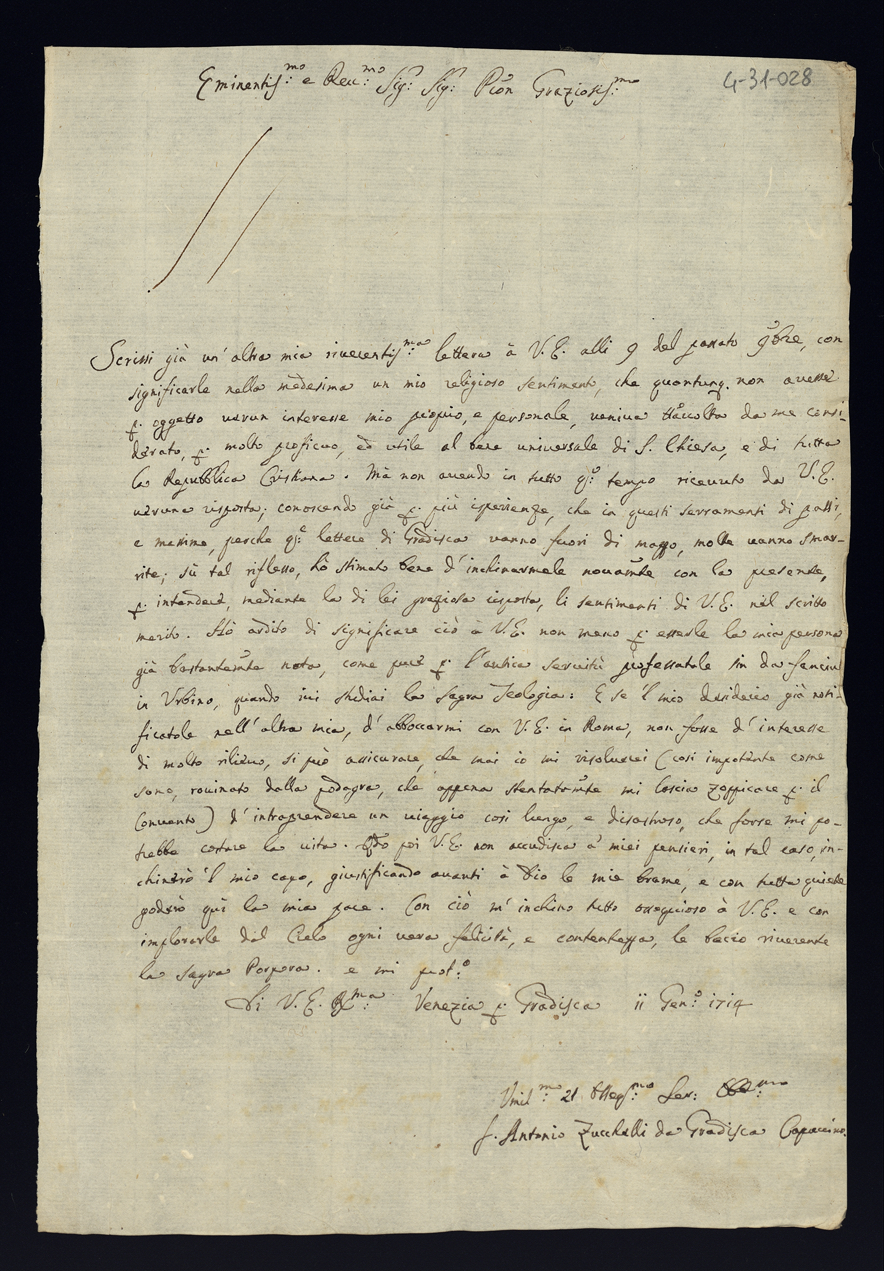 4-31-028
Eminentiss:mo e Reu:mo Sig:r Sig:r Pron Graziosiss:mo
Scrissi già un' altra mia riuerentiss:ma lettera à V. E. alli 9 del passato 9bre, con
significarle nella medesima un mio religioso sentimento, che quantunq. non auesse
p. oggetto uerun interesse mio proprio, e personale, ueniua tuttauolta da me consi-
derato, p. molto proficuo, ed utile al bene uniuersale di S. Chiesa, e di tutta
la Repubblica Cristiana. Mà non auendo in tutto q:o tempo riceuuto da V. E.
ueruna risposta; conoscendo già p. più isperienze, che in questi serramenti di passi,
e massime, perche q: lettere di Gradisca uanno fuori di mazzo, molte uanno smar-
rite; sù tal riflesso, hò stimato bene d' inchinarmele nouamte con la presente,
p. intendere, mediante la di lei graziosa risposta, li sentimenti di V. E. nel scritto
merito. Hò ardito di significare ciò à V. E. non meno p. esserle la mia persona
già bastantemte nota, come pure p. l' antica seruitù professatale sin da fanciul
in Vrbino, quando iui studiai la Sagra Teologia: E se 'l mio desiderio già noti-
ficatole nell' altra mia, d' abboccarmi con V. E. in Roma, non fosse d' interesse
di molto rilieuo, si può assicurare, che mai io mi risoluerei (così impotente come
sono, rouinato dalla podagra, che appena stentatamte mi lascia zopficare p. il
Conuento) d' intraprendere un uiaggio così lungo, e disastroso, che forse mi po-
trebbe costare la uita. Qdo poi V. E. non accudisca a' miei pensieri, in tal caso, in-
chinerò 'l mio capo, giustificando auanti à Dio le mie brame, e con tutta quiete
goderò quì la mia pace. Con ciò m' inchino tutto ossequioso à V. E. e con
implorarle dal Cielo ogni uera felicità, e contentezza, le bacio riuerente
la Sagra Porpora. e mi prot:o
Di V. E. R:ma Venezia p. Gradisca ii Gen:o 1714
Vmil:mo et Osseq:mo Ser:
f. Antonio Zucchelli da Gradisca Capuccino.